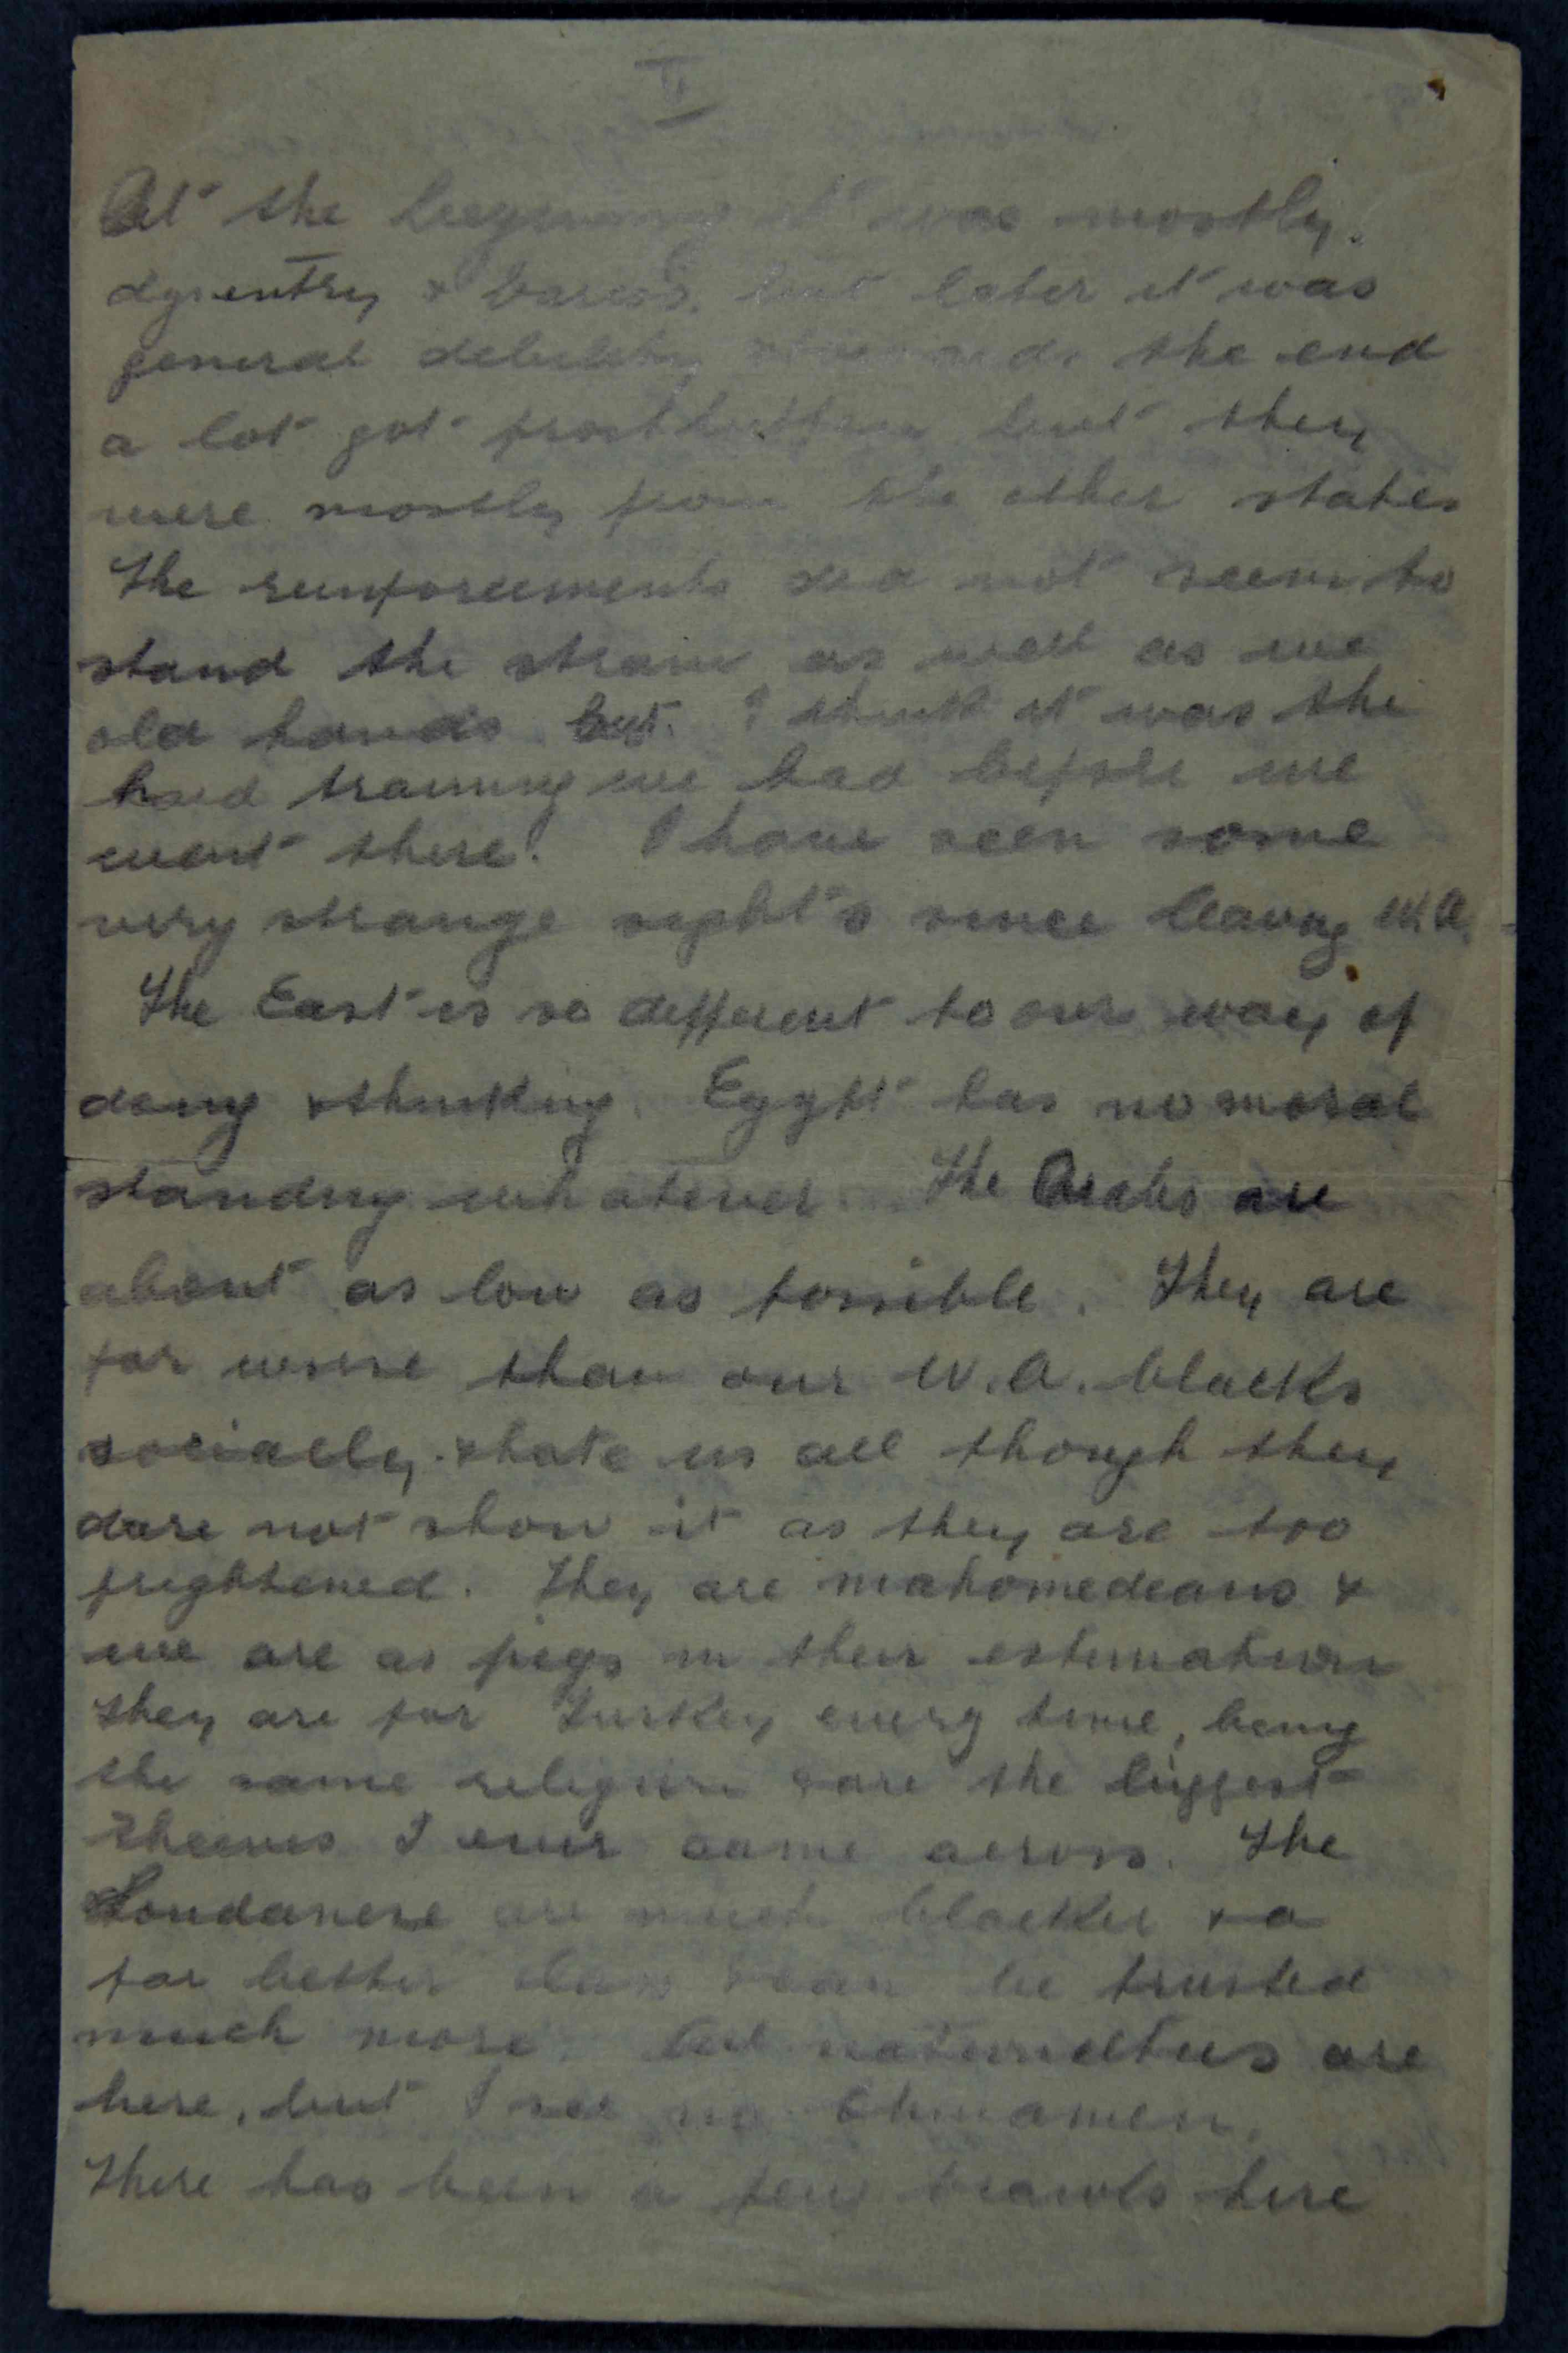 II
At the beginning it was mostly
dysentry & but later it was
general debility & towards the end
a lot got frostbitten but they
were mostly from the other states
The reinforcements did not seem to
stand the strain as well as we
old hands but I think it was the
hard training we had before we
went there. I have seen some
very strange sight's since leaving W.A.
The East is so different to our way of
doing & thinking. Egypt has no moral
standing whatever. The Arabs are
about as low as possible. They are
far worse than our W.A. blacks
socially & hate us all though they
dare not show it as they are too
frightened. They are mahomedeans &
we are as pigs in their estimation
they are for Turkey every time, being
the same religion & are the biggest
theives I ever came across. The
Soudanese are much blacker & a
far better class & can be trusted
much more. All are
here, but I see no Chinamen.
There has been a few brawls here